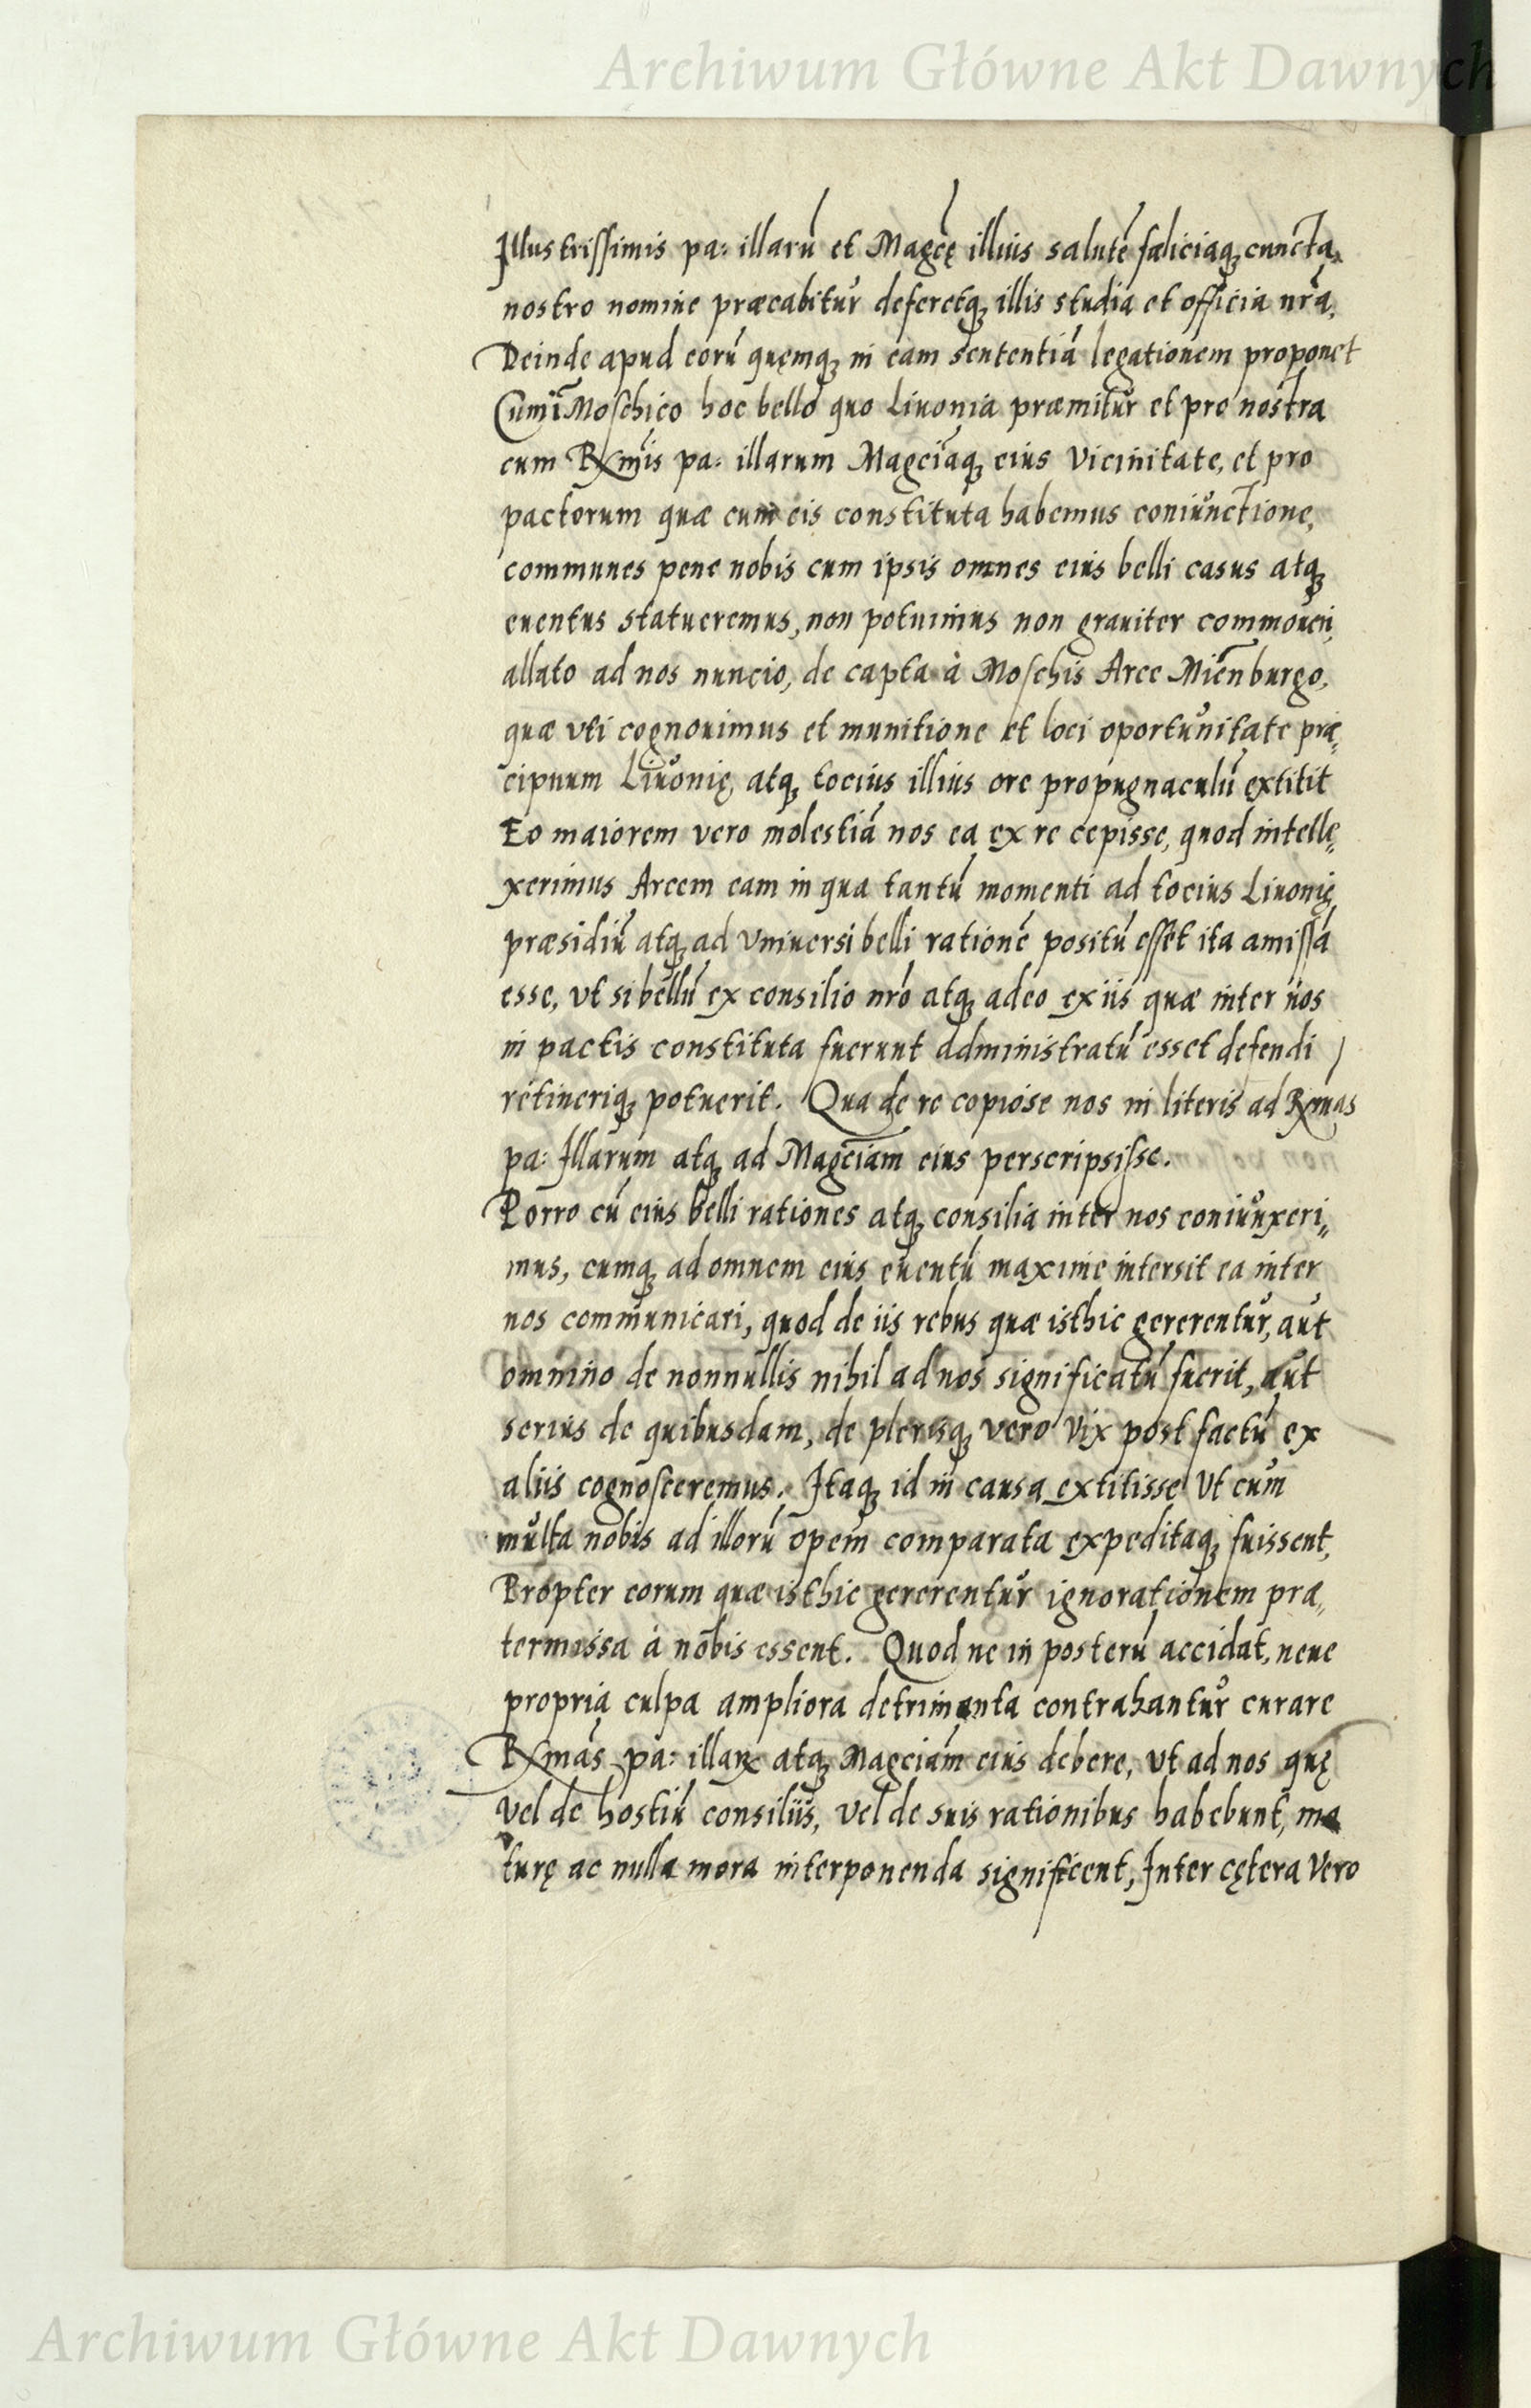 Archiwum Główne Akt Dawnych
Illustrissimis pa: illarũ et Magcę illius salutẽ fæliciaq; cuncta,
nostro nomine præcabitur deferetq; illis studia et officia nr̃a,
Deinde apud eorũ quemq; in eam sententiã legationem proponet
Cum ĩ Moschico hoc bello quo Liuonia præmitur et pro nostra
cum Rx̃mis pa: illarum Magciaq; eius Vicinitate, et pro
pactorum quæ cum eis constituta habemus coniunctione,
communes pene nobis cum ipsis omnes eius belli casus atq;
euentus statueremus, non potuimus non grauiter commoueri,
allato ad nos nuncio, de capta à Moschis Arce Mienburgo,
quæ vti cognouimus et munitione et loci oportunitate præ,
cipuum Liuonię, atq; tocius illius ore propugnaculũ extitit
Eo maiorem vero molestiã nos ea ex re cepisse, quod intelle,,
xerimus Arcem eam in qua tantũ momenti ad tocius Liuonię,
præsidiũ atq; ad vniuersi belli rationẽ positũ esset ita amissã
esse, vt si bellũ ex consilio nr̃o atq; adeo ex iis quæ inter nos
in pactis constituta fuerunt administratũ esset defendi
retineriq; potuerit. Qua de re copiose nos in literis ad Rx̃mas
pa: Illarum atq; ad Magciam eius perscripsisse.
Porro cũ eius belli rationes atq; consilia inter nos coniunxeri,,
mus, cumq; ad omnem eius euentũ maxime intersit ea inter
nos communicari, quod de iis rebus quæ isthic gererentur, aut
omnino de nonnullis nihil ad nos significatũ fuerit, aut
serius de quibusdam, de plerisq; vero Vix post factũ ex
aliis cognosceremus. Itaq; id in causa extitisse Vt cum
multa nobis ad illorũ opem comparata expeditaq; fuissent,
Propter eorum quæ isthic gererentur ignorationem præ,,
termissa à nobis essent. Quod ne in posterũ accidat, neue
propria culpa ampliora detrimenta contrahantur curare
Rx̃mas pa: illarx atq; Magciam eius debere, vt ad nos quę
vel de hostiũ consiliis, vel de suis rationibus habebunt, ma
turę ac nulla mora interponenda significent, Inter cętera Vero
Archiwum Główne Akt Dawnych